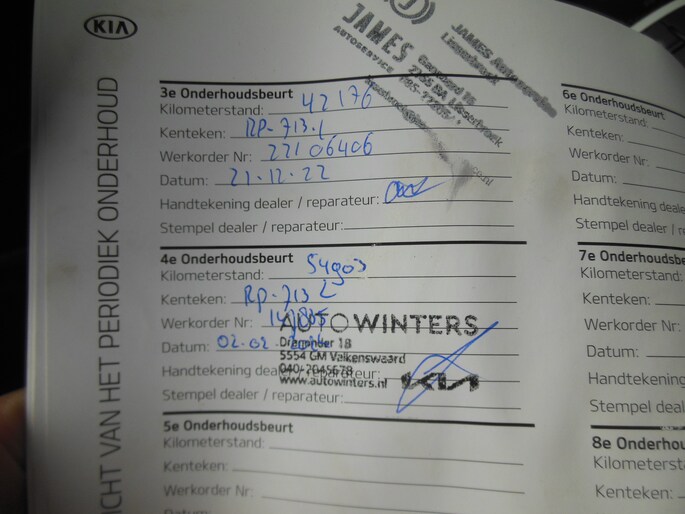 KIA
JAMES
AUTOSERVICE
JAMES Autoservice
3e Onderhoudsbeurt
Kilometerstand: 42176
Kenteken: RP-713-L
Werkorder Nr: 22106406
Datum: 21.12.22
Handtekening dealer / reparateur:
Stempel dealer / reparateur:
4e Onderhoudsbeurt
Kilometerstand: 54903
Kenteken: RP-713 L
Werkorder Nr:
Datum: 02-02
Handtekening dealer / reparateur:
Stempel dealer / reparateur:
AUTO WINTERS
Dragonder 18
5554 GM Valkenswaard
040-2045678
www.autowinters.nl
KIA
5e Onderhoudsbeurt
Kilometerstand:
Kenteken:
Werkorder Nr:
Datum:
6e Onderhoudsbeurt
Kilometerstand:
Kenteken:
Werkorder Nr:
Datum:
Handtekening deale
Stempel dealer / r
7e Onderhoudsbe
Kilometerstand:
Kenteken:
Werkorder Nr:
Datum:
Handtekening
Stempel deale
8e Onderhou
Kilometerst
Kenteken:
ICHT VAN HET PERIODIEK ONDERHOUD